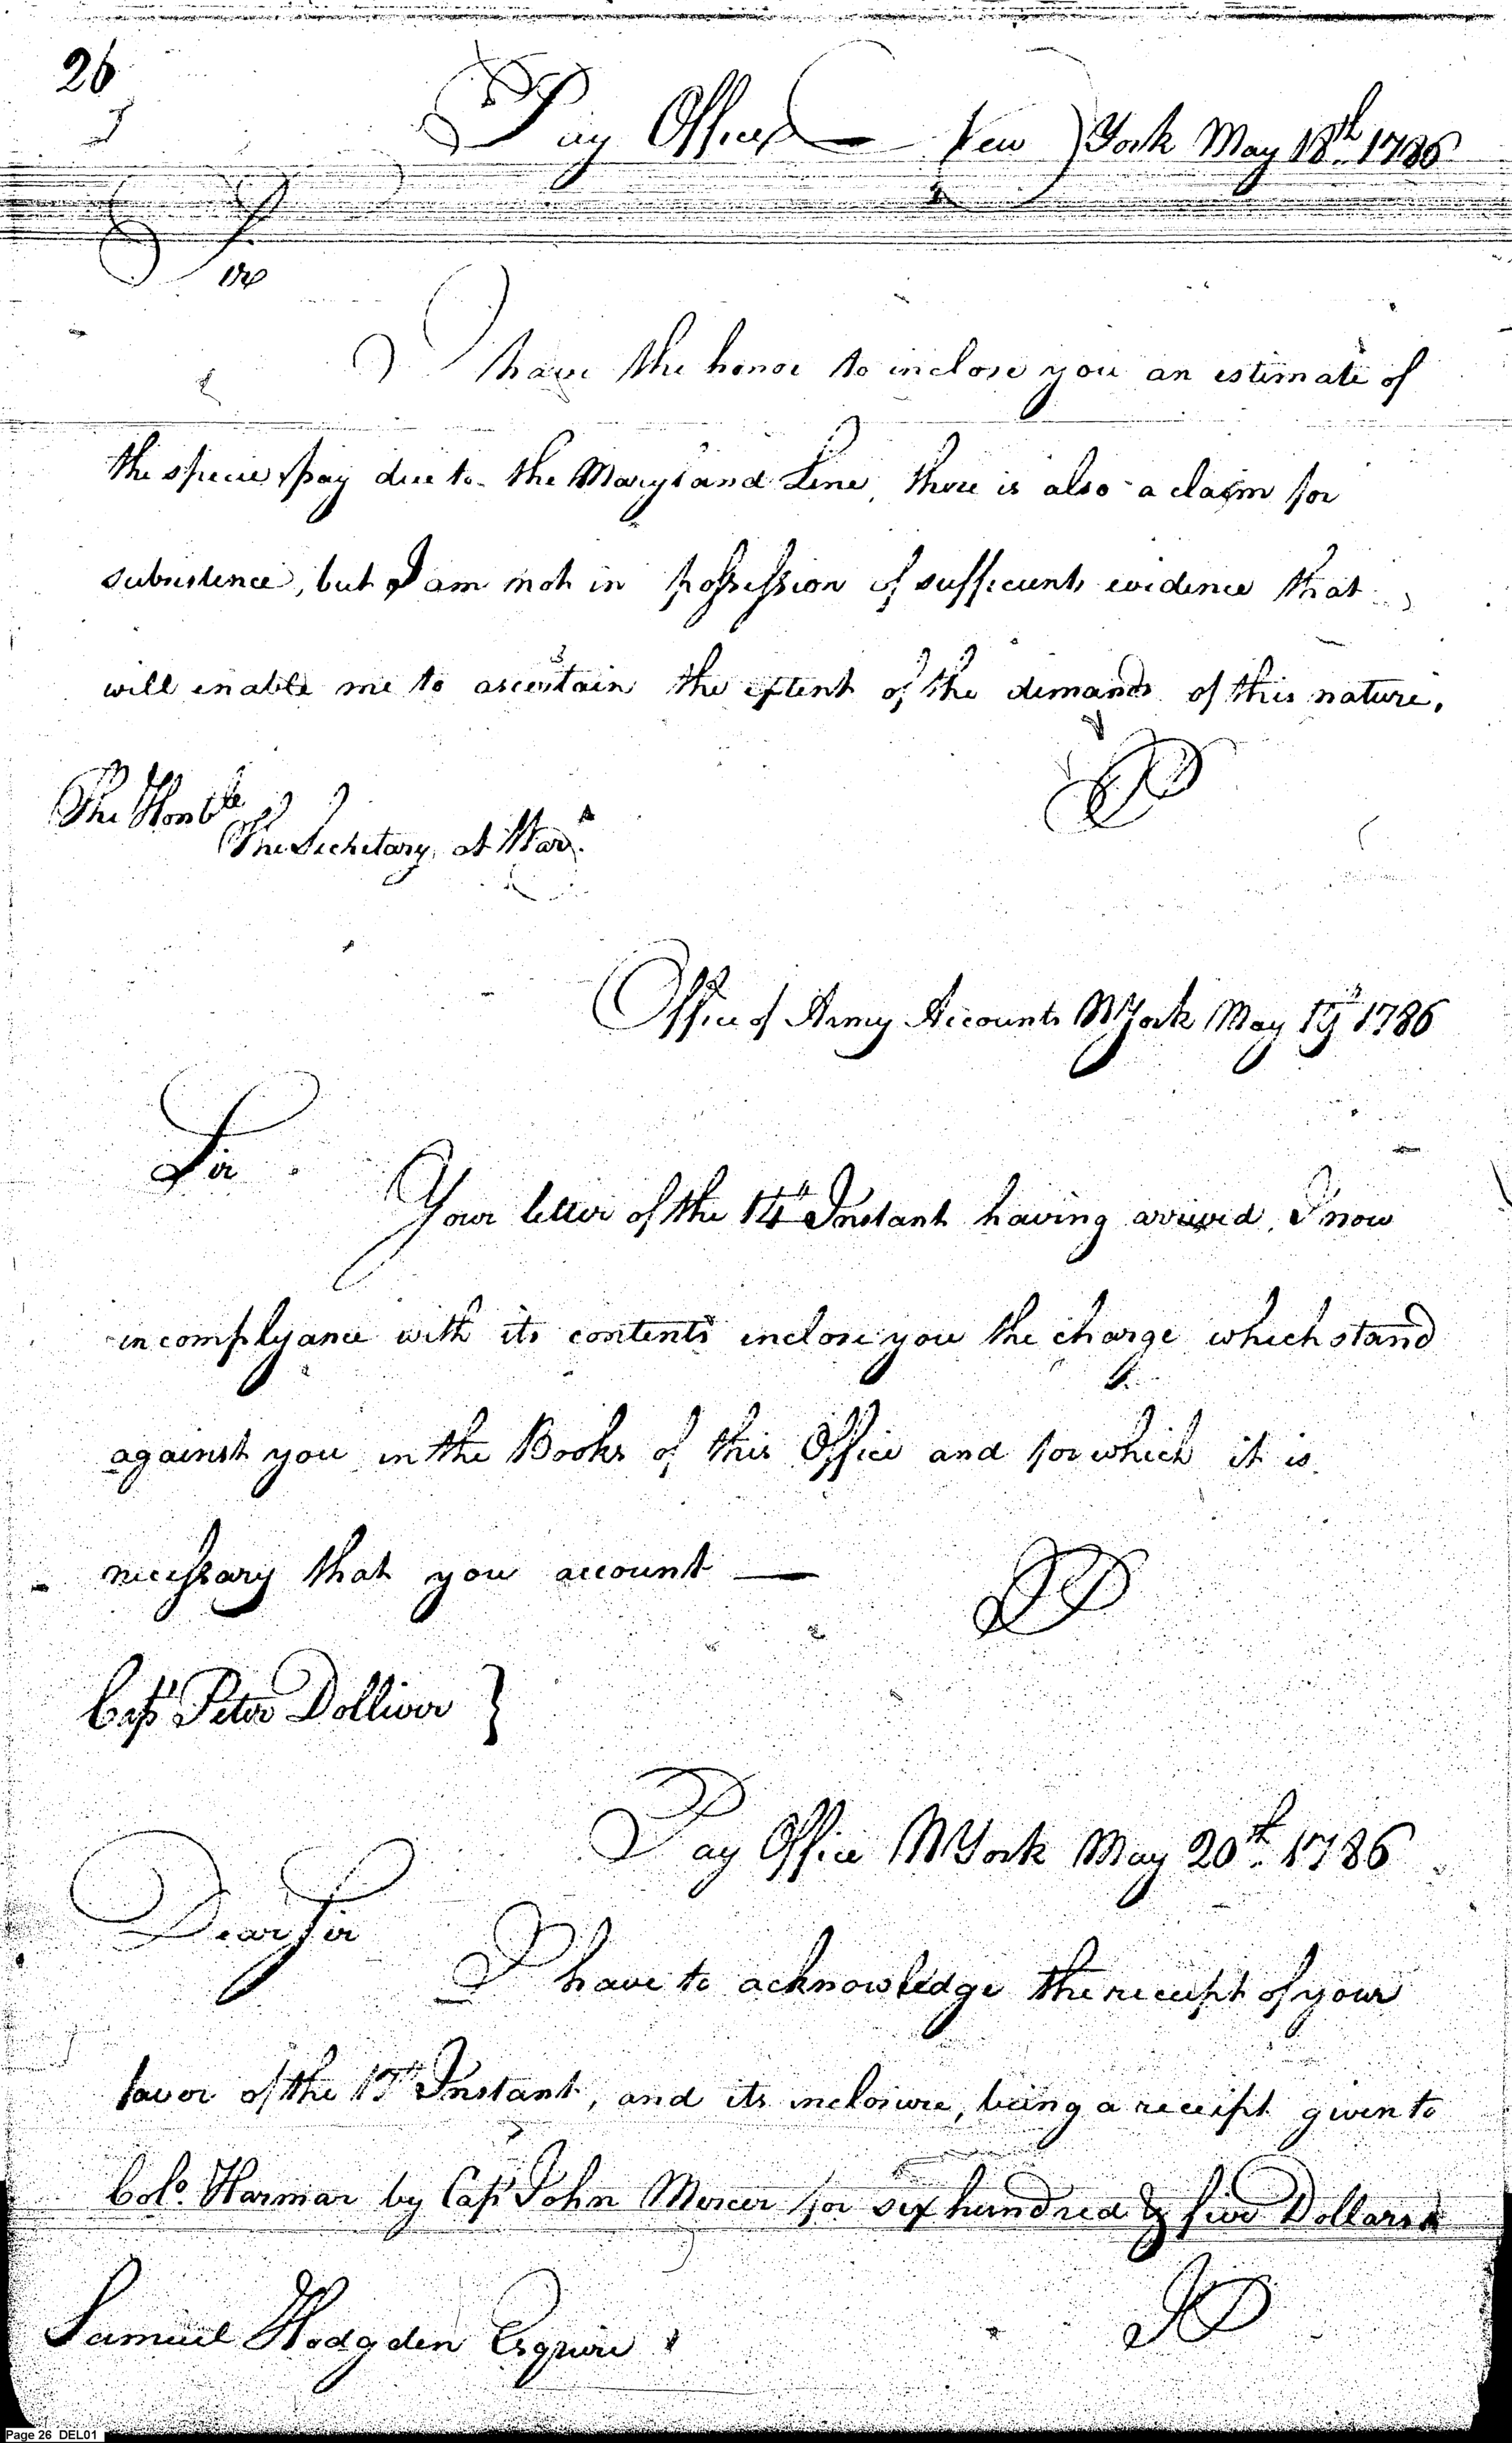 26
Pay Office New York May 18th 1786
Sir
I have the honor to inclose you an estimate of
the specie pay due to the Maryland Line, there is also a claim for
subsistence, but I am not in possession of sufficient evidence that
will enable me to ascertain the extent of the demands of this nature.
The Honble
The Secretary at War.
Office of Army Accounts NYork May 19th 1786
Sir
Your letter of the 14th Instant having arrived, I now
in complyance with its contents inclose you the charge which stand
against you in the Books of this Office and for which it is
necessary that you account —
Capt Peter Dolliver }
Pay Office NYork May 20th 1786
Dear Sir
I have to acknowledge the receipt of your
favor of the Instant, and its inclosure, being a receipt given to
Colo. Harmar by Capt John Mercer for six hundred & five Dollars
Samuel Hodgden Esquire
Page 26 DEL01